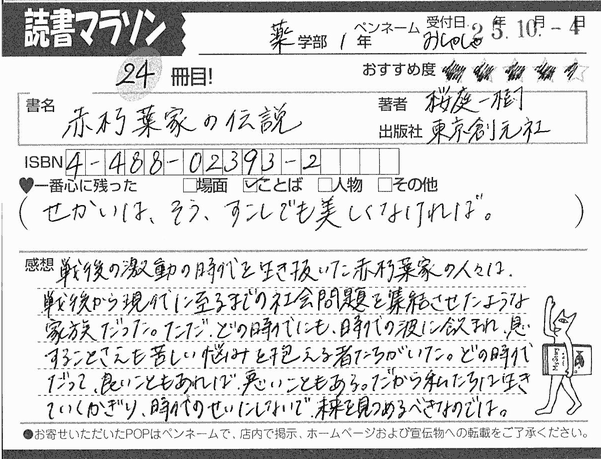 読書マラソン
薬 学部 1 年 ペンネーム おしゃしゃ 受付日 25.年10.月-4日
24 冊目! おすすめ度
書名 赤朽葉家の伝説 著者 桜庭一樹
出版社 東京創元社
ISBN 4-488-02393-2
♥一番心に残った □場面 ☑ことば □人物 □その他
(せかいは、そう、すこしでも美しくなければ。)
感想 戦後の激動の時代を生き抜いた赤朽葉家の人々は、
戦後から現代に至るまでの社会問題を集結させたような
家族だった。ただ、どの時代にも、時代の波に飲まれ、息
することさえも苦しい悩みを抱える者たちがいた。どの時代
だって、良いこともあれば、悪いこともある。だから私たちは生き
ていくかぎり、時代のせいにしないで、未来を見つめるべきなのでは。
●お寄せいただいたPOPはペンネームで、店内で掲示、ホームページおよび宣伝物への転載をご了承ください。